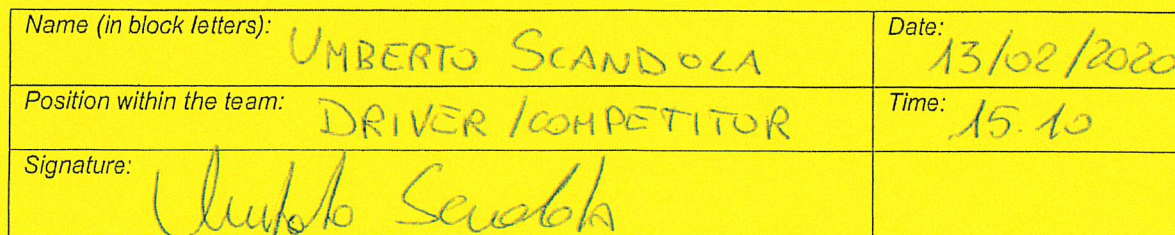 Name (in block letters): UMBERTO SCANDOLA Date: 13/02/2020
Position within the team: DRIVER / COMPETITOR Time: 15.10
Signature: Umberto Scandola